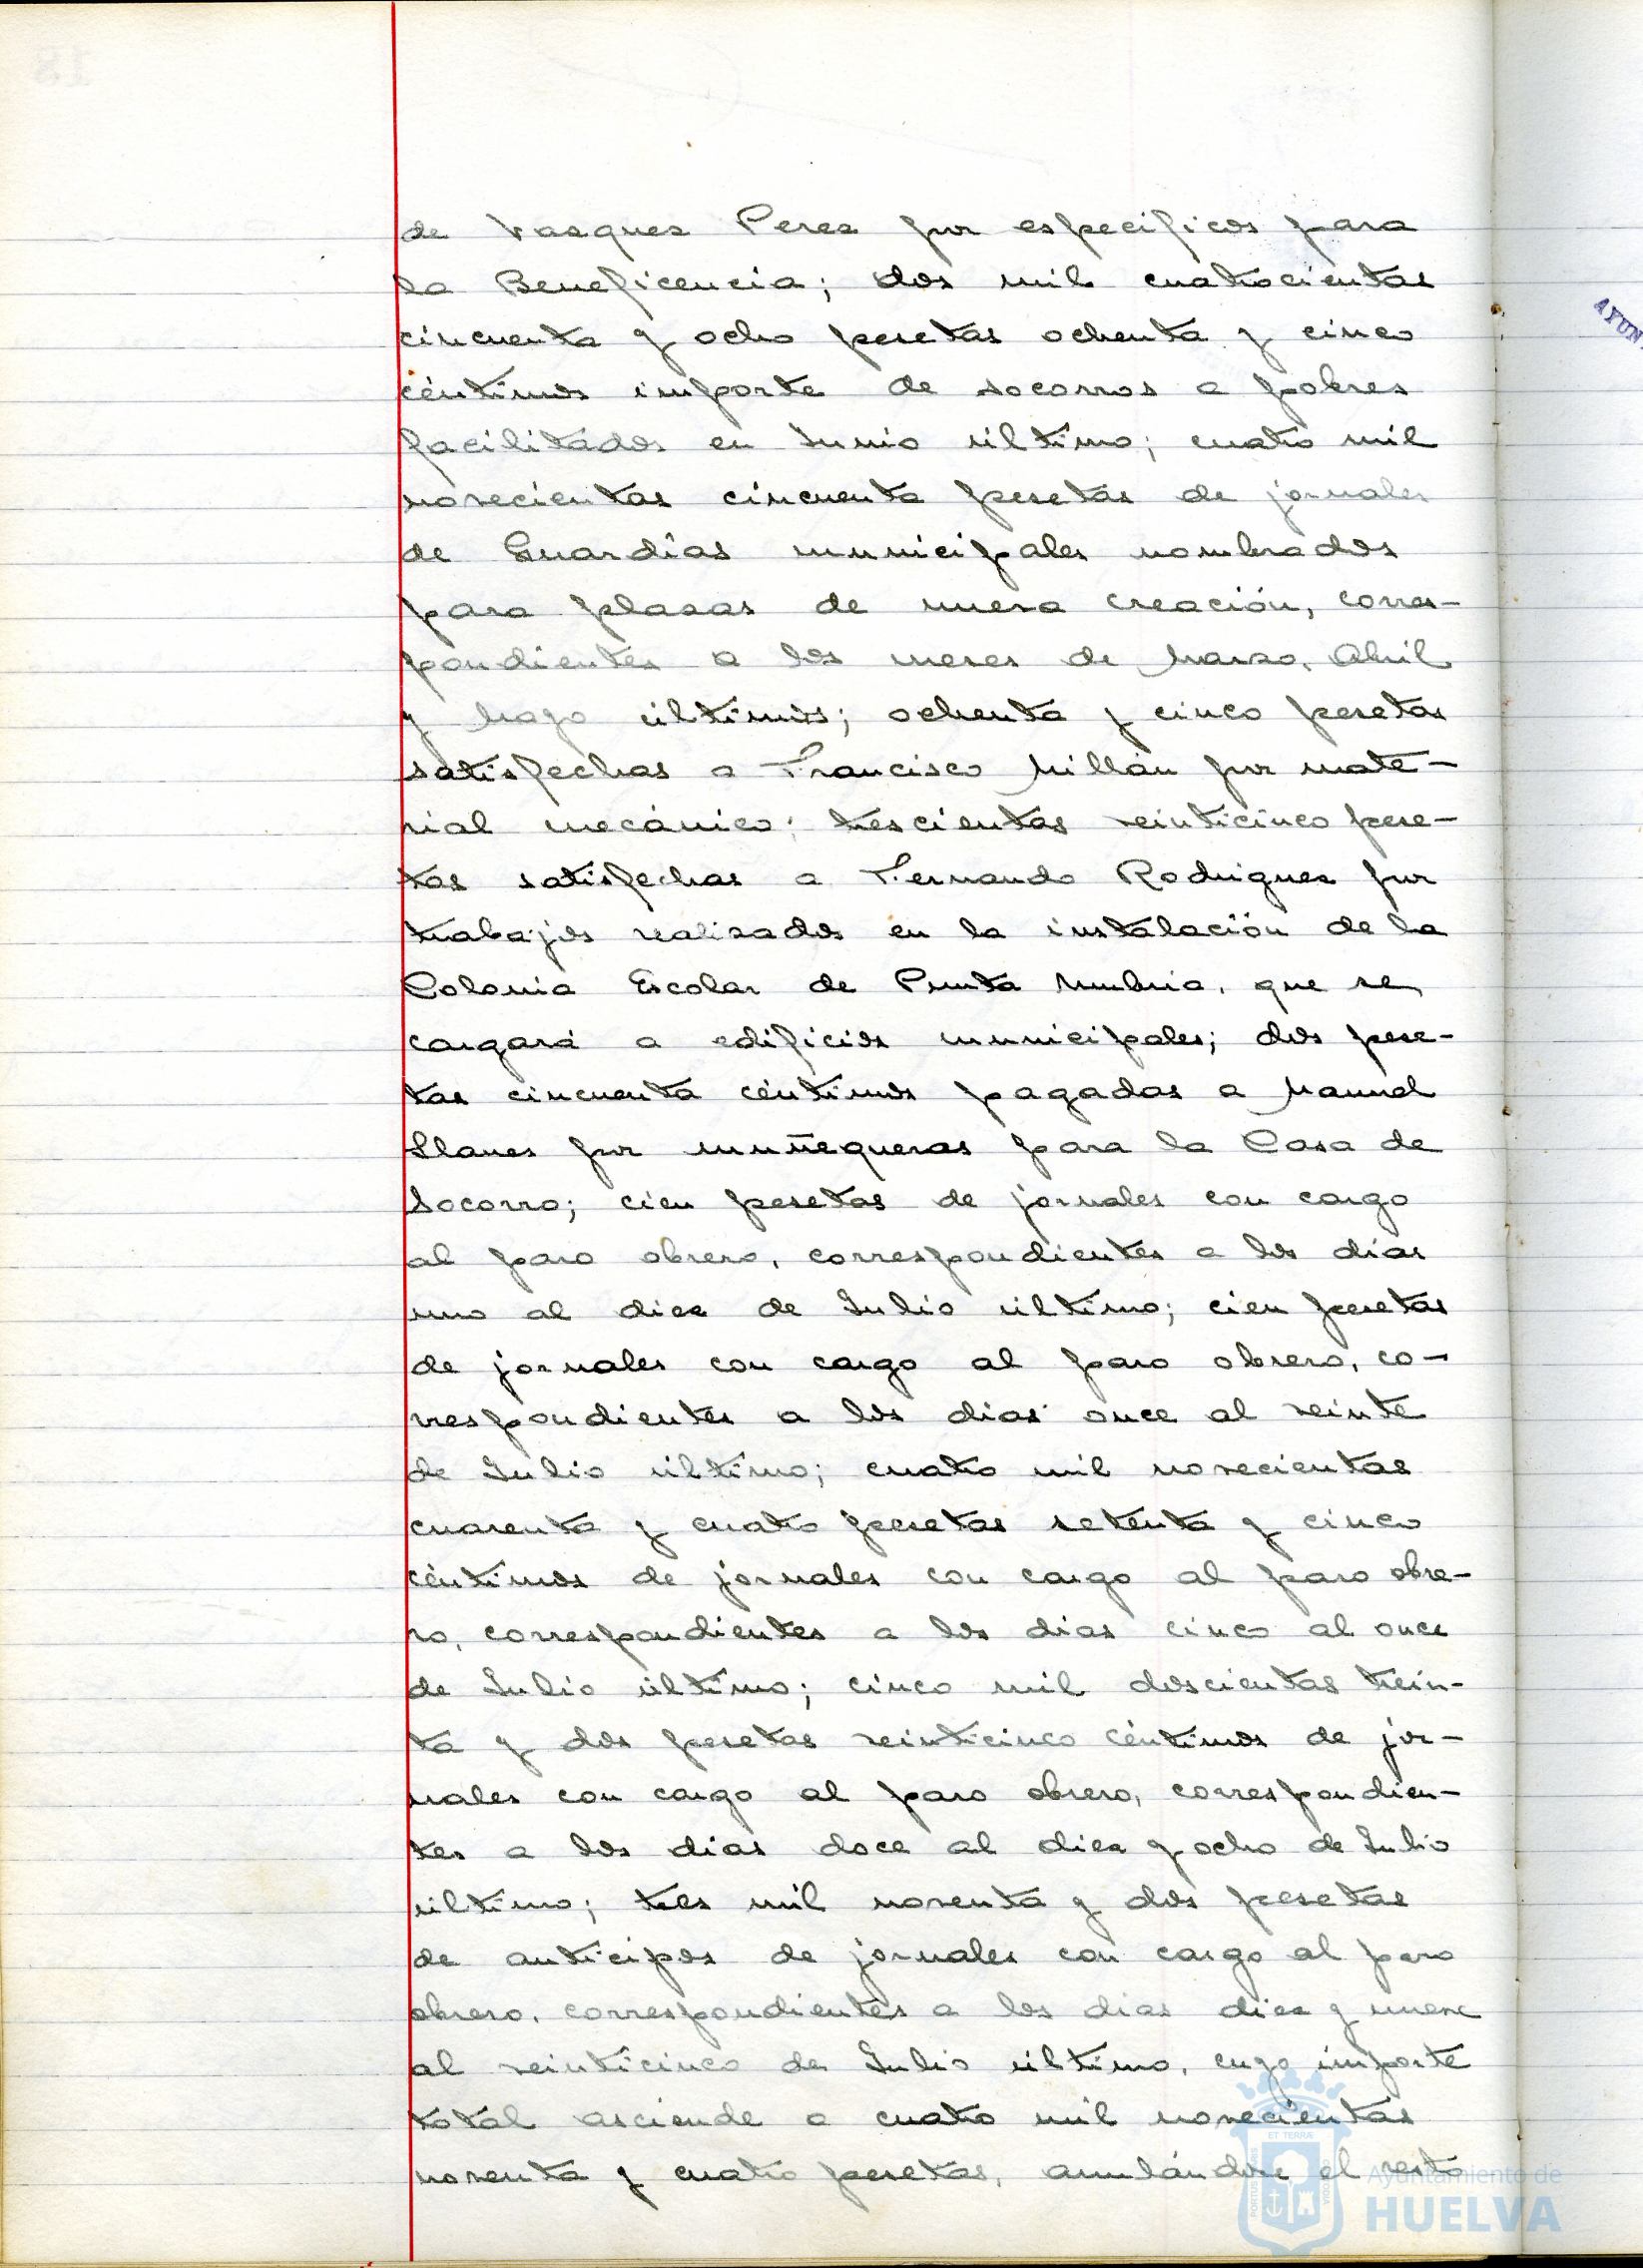 de Vazquez Perez por especificos para
la Beneficencia; dos mil cuatrocientas
cincuenta y ocho pesetas ochenta y cinco
céntimos importe de socorros a pobres
facilitados en Junio último; cuatro mil
novecientas cincuenta pesetas de jornales
de Guardias municipales nombrados
para plazas de nueva creación, corres-
pondientes a los meses de Marzo, Abril
y Mayo últimos; ochenta y cinco pesetas
satisfechas a Francisco Millán por mate-
rial mecánico; trescientas veinticinco pese-
tas satisfechas a Fernando Rodriguez por
trabajos realizados en la instalación de la
Colonia Escolar de Punta Umbria, que se
cargará a edificios municipales; dos pese-
tas cincuenta céntimos pagadas a Manuel
Llanes por muñequeras para la Casa de
Socorro; cien pesetas de jornales con cargo
al paro obrero, correspondientes a los dias
uno al diez de Julio último; cien pesetas
de jornales con cargo al paro obrero, co-
rrespondientes a los dias once al veinte
de Julio último; cuatro mil novecientas
cuarenta y cuatro pesetas setenta y cinco
céntimos de jornales con cargo al paro obre-
ro, correspondientes a los dias cinco al once
de Julio último; cinco mil doscientas trein-
ta y dos pesetas veinticinco céntimos de jor-
nales con cargo al paro obrero, correspondien-
tes a los dias doce al diez y ocho de Julio
último; tres mil noventa y dos pesetas
de anticipos de jornales con cargo al paro
obrero, correspondientes a los dias diez y nueve
al veinticinco de Julio último, cuyo importe
total asciende a cuatro mil novecientas
noventa y cuatro pesetas, anulándose el resto
Ayuntamiento de
HUELVA
AYUN
18